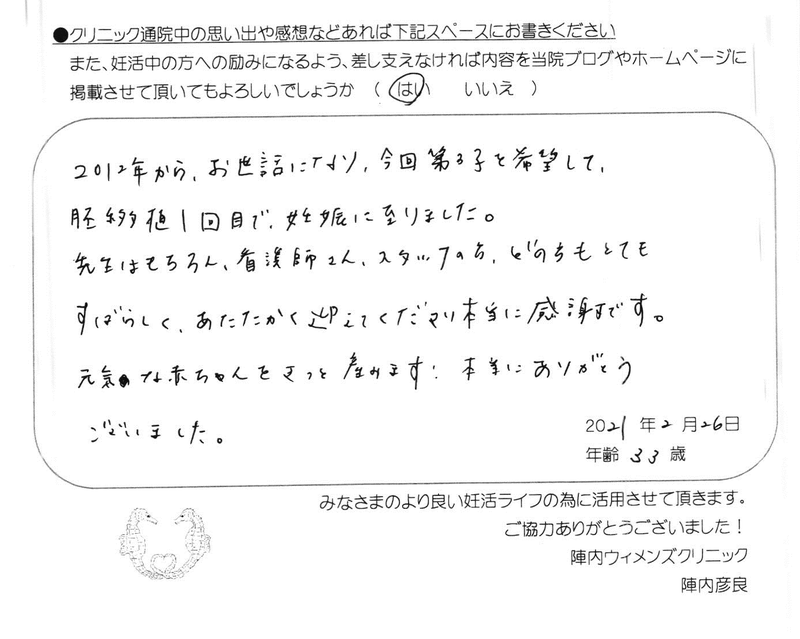 ●クリニック通院中の思い出や感想などあれば下記スペースにお書きください
また、妊活中の方への励みになるよう、差し支えなければ内容を当院ブログやホームページに
掲載させて頂いてもよろしいでしょうか （ はい いいえ ）
2012年から、お世話になり、今回第3子を希望して、
胚移植1回目で、妊娠に至りました。
先生はもちろん、看護師さん、スタッフの方、どの方もとても
すばらしく、あたたかく迎えてくださり本当に感謝です。
元気な赤ちゃんをきっと産みます! 本当にありがとう
ございました。
2021年2月26日
年齢 33歳
みなさまのより良い妊活ライフの為に活用させて頂きます。
ご協力ありがとうございました！
陣内ウィメンズクリニック
陣内彦良